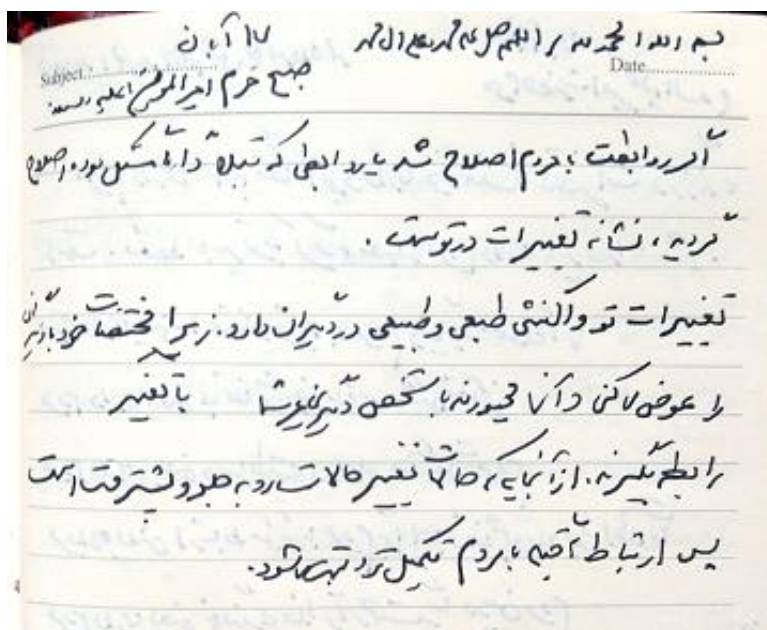 بسم الله الحمد لله اللهم صل علی محمد و علی آل محمد
۱۷ آبان
Subject: Date
صبح حرم امیرالمؤمنین علیه
اگر روابطت با مردم اصلاح شد یا روابطی که قبلاً دارای مشکل بوده اصلاح
گردید، نشانه تغییرات در توست.
تغییرات تو واکنشی طبعی و طبیعی در دیگران دارد. زیرا مختصات خود با دیگران
را عوض می‌کنی و آنها مجبورند با شخص دیگری با تغییر
رابطه بگیرند. از آنجایی که تغییر حالات رو به جلو و پیشرفت است
پس ارتباط با مردم تکمیل‌تر و بهتر می‌شود.